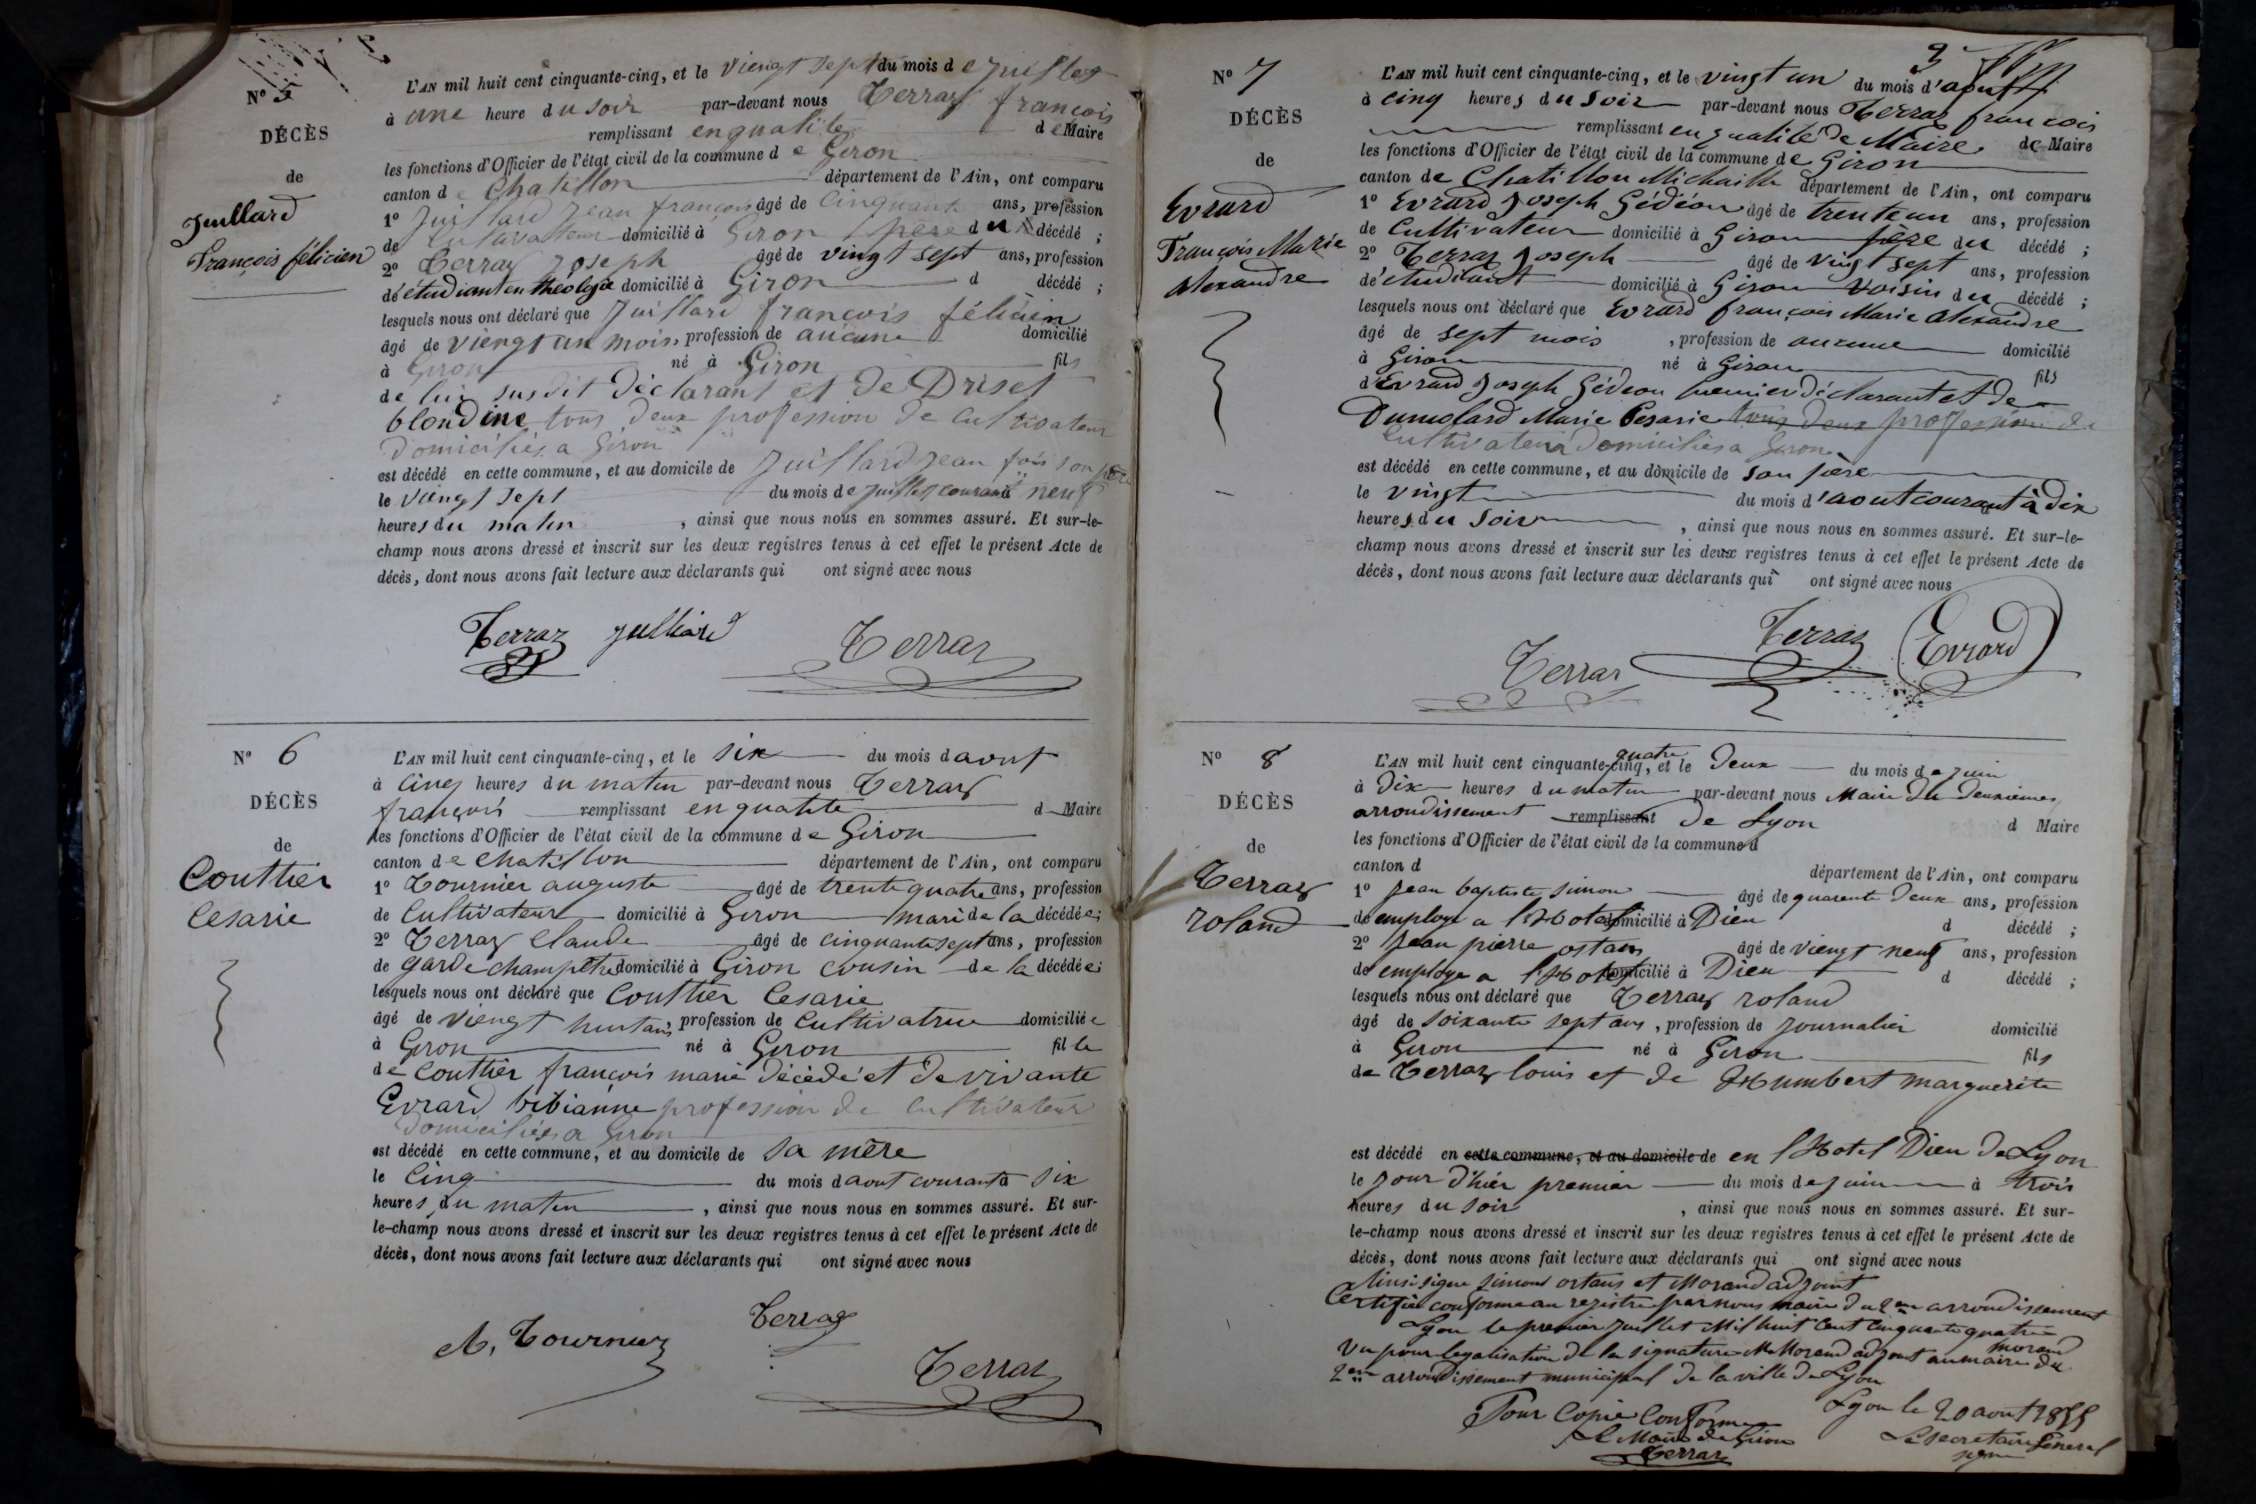 N° 5
DÉCÈS
de
Juillard
François félicien
L'AN mil huit cent cinquante-cinq, et le viengt sept du mois de juillet
à une heure du soir par-devant nous Terraz françois
remplissant en qualité de Maire
les fonctions d'Officier de l'état civil de la commune de Giron
canton de Chatillon département de l'Ain, ont comparu
1° Juillard jean françois âgé de cinquante ans, profession
de cultavateur domicilié à Giron père du décédé ;
2° Terraz joseph âgé de vingt sept ans, profession
d'étudiant en théologie domicilié à Giron d décédé ;
lesquels nous ont déclaré que Juillard françois félicien
âgé de viengt un mois, profession de aucune domicilié
à Giron né à Giron fils
de lui susdit déclarant et de Driset
blondine tous deux profession de cultivateur
domiciliés a Giron
est décédé en cette commune, et au domicile de Juillard jean fois son père
le viengt sept du mois de juillet courant à neuf
heures du matin, ainsi que nous nous en sommes assuré. Et sur-le-
champ nous avons dressé et inscrit sur les deux registres tenus à cet effet le présent Acte de
décès, dont nous avons fait lecture aux déclarants qui ont signé avec nous
Terraz Julliard Terraz
N° 6
DÉCÈS
de
Couttier
Cesarie
L'AN mil huit cent cinquante-cinq, et le six du mois d aout
à cinq heures du matin par-devant nous Terraz
françois remplissant en qualité d Maire
les fonctions d'Officier de l'état civil de la commune de Giron
canton de Chatillon département de l'Ain, ont comparu
1° Tournier auguste âgé de trente quatre ans, profession
de Cultivateur domicilié à Giron mari de la décédée;
2° Terraz Claude âgé de cinquante sept ans, profession
de garde champêtre domicilié à Giron cousin de la décédée;
lesquels nous ont déclaré que Couttier Cesarie
âgé de viengt huit ans, profession de Cultivatrice domiciliée
à Giron né à Giron fille
de Couttier françois marie décédé et de vivante
Evrard bibianne profession de cultivateur
domiciliés a Giron
est décédé en cette commune, et au domicile de sa mère
le cinq du mois d aout courant à six
heures du matin, ainsi que nous nous en sommes assuré. Et sur-
le-champ nous avons dressé et inscrit sur les deux registres tenus à cet effet le présent Acte de
décès, dont nous avons fait lecture aux déclarants qui ont signé avec nous
A. Tournier Terraz
Terraz
3
N° 7
DÉCÈS
de
Evrard
François Marie
Alexandre
L'AN mil huit cent cinquante-cinq, et le vingt un du mois d'aout
à cinq heures du soir par-devant nous Terraz françois
remplissant en qualité de Maire de Maire
les fonctions d'Officier de l'état civil de la commune de Giron
canton de Chatillon Michaille département de l'Ain, ont comparu
1° Evrard Joseph Gédéon âgé de trente un ans, profession
de Cultivateur domicilié à Giron père du décédé ;
2° Terraz Joseph âgé de vingt sept ans, profession
d'étudiant domicilié à Giron voisin du décédé ;
lesquels nous ont déclaré que Evrard françois Marie Alexandre
âgé de sept mois, profession de aucune domicilié
à Giron né à Giron fils
d'Evrard Joseph Gédeon premier déclarant et de
Dumolard Marie Cesarie tous deux profession de
cultivateur domiciliés a Giron
est décédé en cette commune, et au domicile de son père
le vingt du mois d'aout courant à dix
heures du soir, ainsi que nous nous en sommes assuré. Et sur-le-
champ nous avons dressé et inscrit sur les deux registres tenus à cet effet le présent Acte de
décès, dont nous avons fait lecture aux déclarants qui ont signé avec nous
Terraz Terraz Evrard
N° 8
DÉCÈS
de
Terraz
roland
L'AN mil huit cent cinquante-cinq, quatre et le deux du mois de juin
à Dix heures du matin par-devant nous Maire du deuxième
arrondissement remplissant de Lyon d Maire
les fonctions d'Officier de l'état civil de la commune d
canton d département de l'Ain, ont comparu
1° Jean baptiste simon âgé de quarente deux ans, profession
de employe a l'Hotel domicilié à Dieu d décédé ;
2° Jean pierre ostans âgé de viengt neuf ans, profession
de employe a l'Hotel domicilié à Dieu d décédé ;
lesquels nous ont déclaré que Terraz roland
âgé de soixante sept ans, profession de journalier domicilié
à Giron né à Giron fils
de Terraz louis et de Humbert marguerite
est décédé en cette commune, et au domicile de en l'Hotel Dieu de Lyon
le jour d'hier premier du mois de juin à trois
heures du soir, ainsi que nous nous en sommes assuré. Et sur-
le-champ nous avons dressé et inscrit sur les deux registres tenus à cet effet le présent Acte de
décès, dont nous avons fait lecture aux déclarants qui ont signé avec nous
Ainsi signe simond ostans et Morand adjoint
Certifiée conforme au registre par nous maire du 2em arrondissement
Lyon le premier juillet Mil huit cent cinquante quatre
morand
Vu pour legalisation de la signature M Morand adjoint au maire du
2em arrondissement municipal de la ville de Lyon
Lyon le 20 aout 1855
Pour Copie Conforme
Le secretaire General
Le Maire de Giron
signe
Terraz